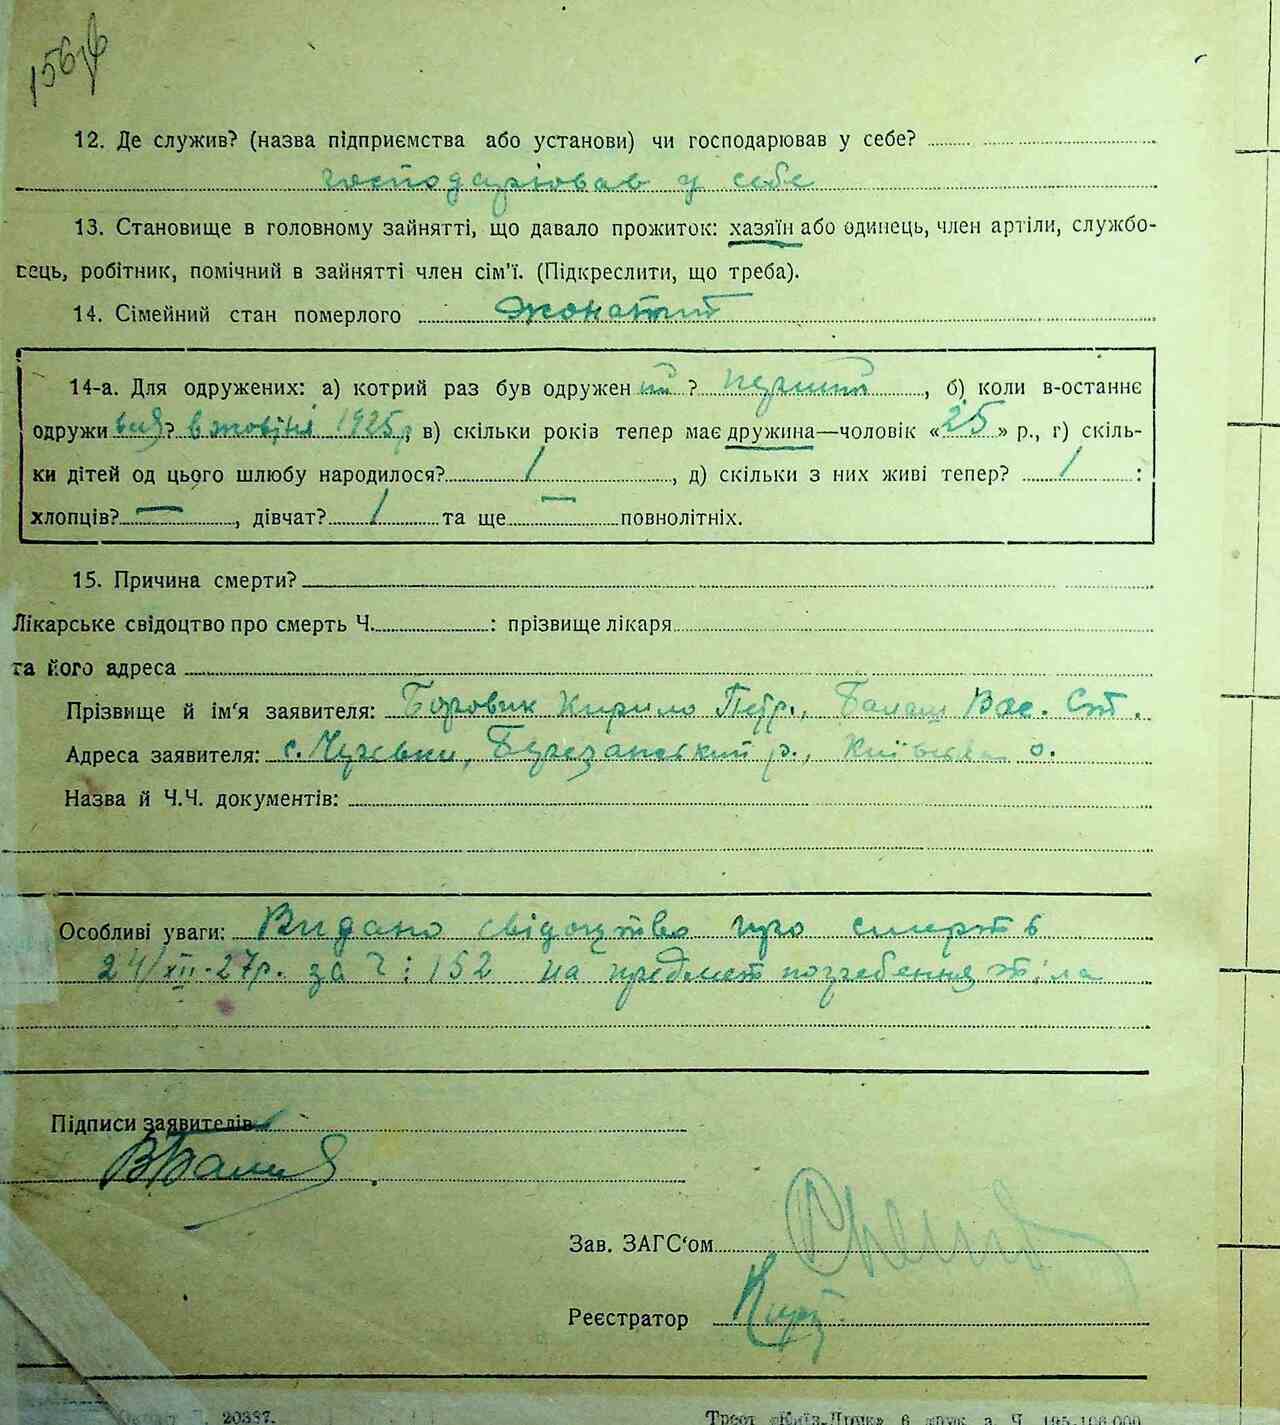 156
12. Де служив? (назва підприємства або установи) чи господарював у себе?
господарював у себе
13. Становище в головному зайнятті, що давало прожиток: хазяїн або одинець, член артіли, службо-
вець, робітник, помічний в зайнятті член сім'ї. (Підкреслити, що треба).
14. Сімейний стан померлого жонатий
14-а. Для одружених: а) котрий раз був одружений? перший, б) коли в-останнє
одружився? в жовтні 1925 р, в) скільки років тепер має дружина—чоловік «25» р., г) скіль-
ки дітей од цього шлюбу народилося? 1, д) скільки з них живі тепер? 1:
хлопців? —, дівчат? 1 та ще — повнолітніх.
15. Причина смерти?
Лікарське свідоцтво про смерть Ч. : прізвище лікаря
та його адреса
Прізвище й ім'я заявителя: Боровик Кирило Петр., Балаш Вас. Ст.
Адреса заявителя: с. Березанський р., Київська о.
Назва й Ч.Ч. документів:
Особливі уваги: Видано свідоцтво про смерть
24/XII-27р. за Ч: 152 на предмет погребення тіла
Підписи заявителів
Зав. ЗАГС'ом
Реєстратор
20387.
Трест «Київ-Друк» 6 друк. з. Ч.